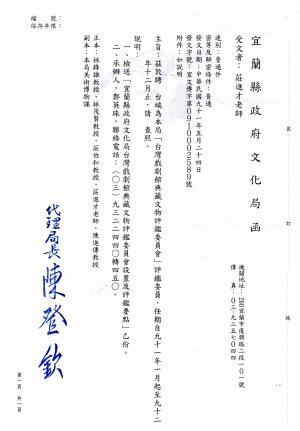 檔　號：
保存年限：
宜蘭縣政府文化局 函
機關地址：260宜蘭市復興路二段一〇一號
傳　真：〇三-九三五七〇四四
受文者：莊進才老師
速別：普通件
密等及解密條件：普通
發文日期：中華民國九十一年五月二十四日
發文字號：宜文博字第0910002589號
附件：如說明
主旨：茲敦聘　台端為本局「台灣戲劇館典藏文物評鑑委員會」評鑑委員，任期自九十一年一月起至九十二
年十二月止，請　查照。
說明：
一、檢送「宜蘭縣政府文化局台灣戲劇館典藏文物評鑑委員會設置及評鑑要點」乙份。
二、承辦人：鄭英珠，聯絡電話：（〇三）九三二二四四〇轉四五〇。
正本：林鋒雄教授、林茂賢教授、莊伯和教授、莊進才老師、陳進傳教授
副本：本局美術博物課
代理局長 陳登欽
第一頁 共一頁
裝
訂
線